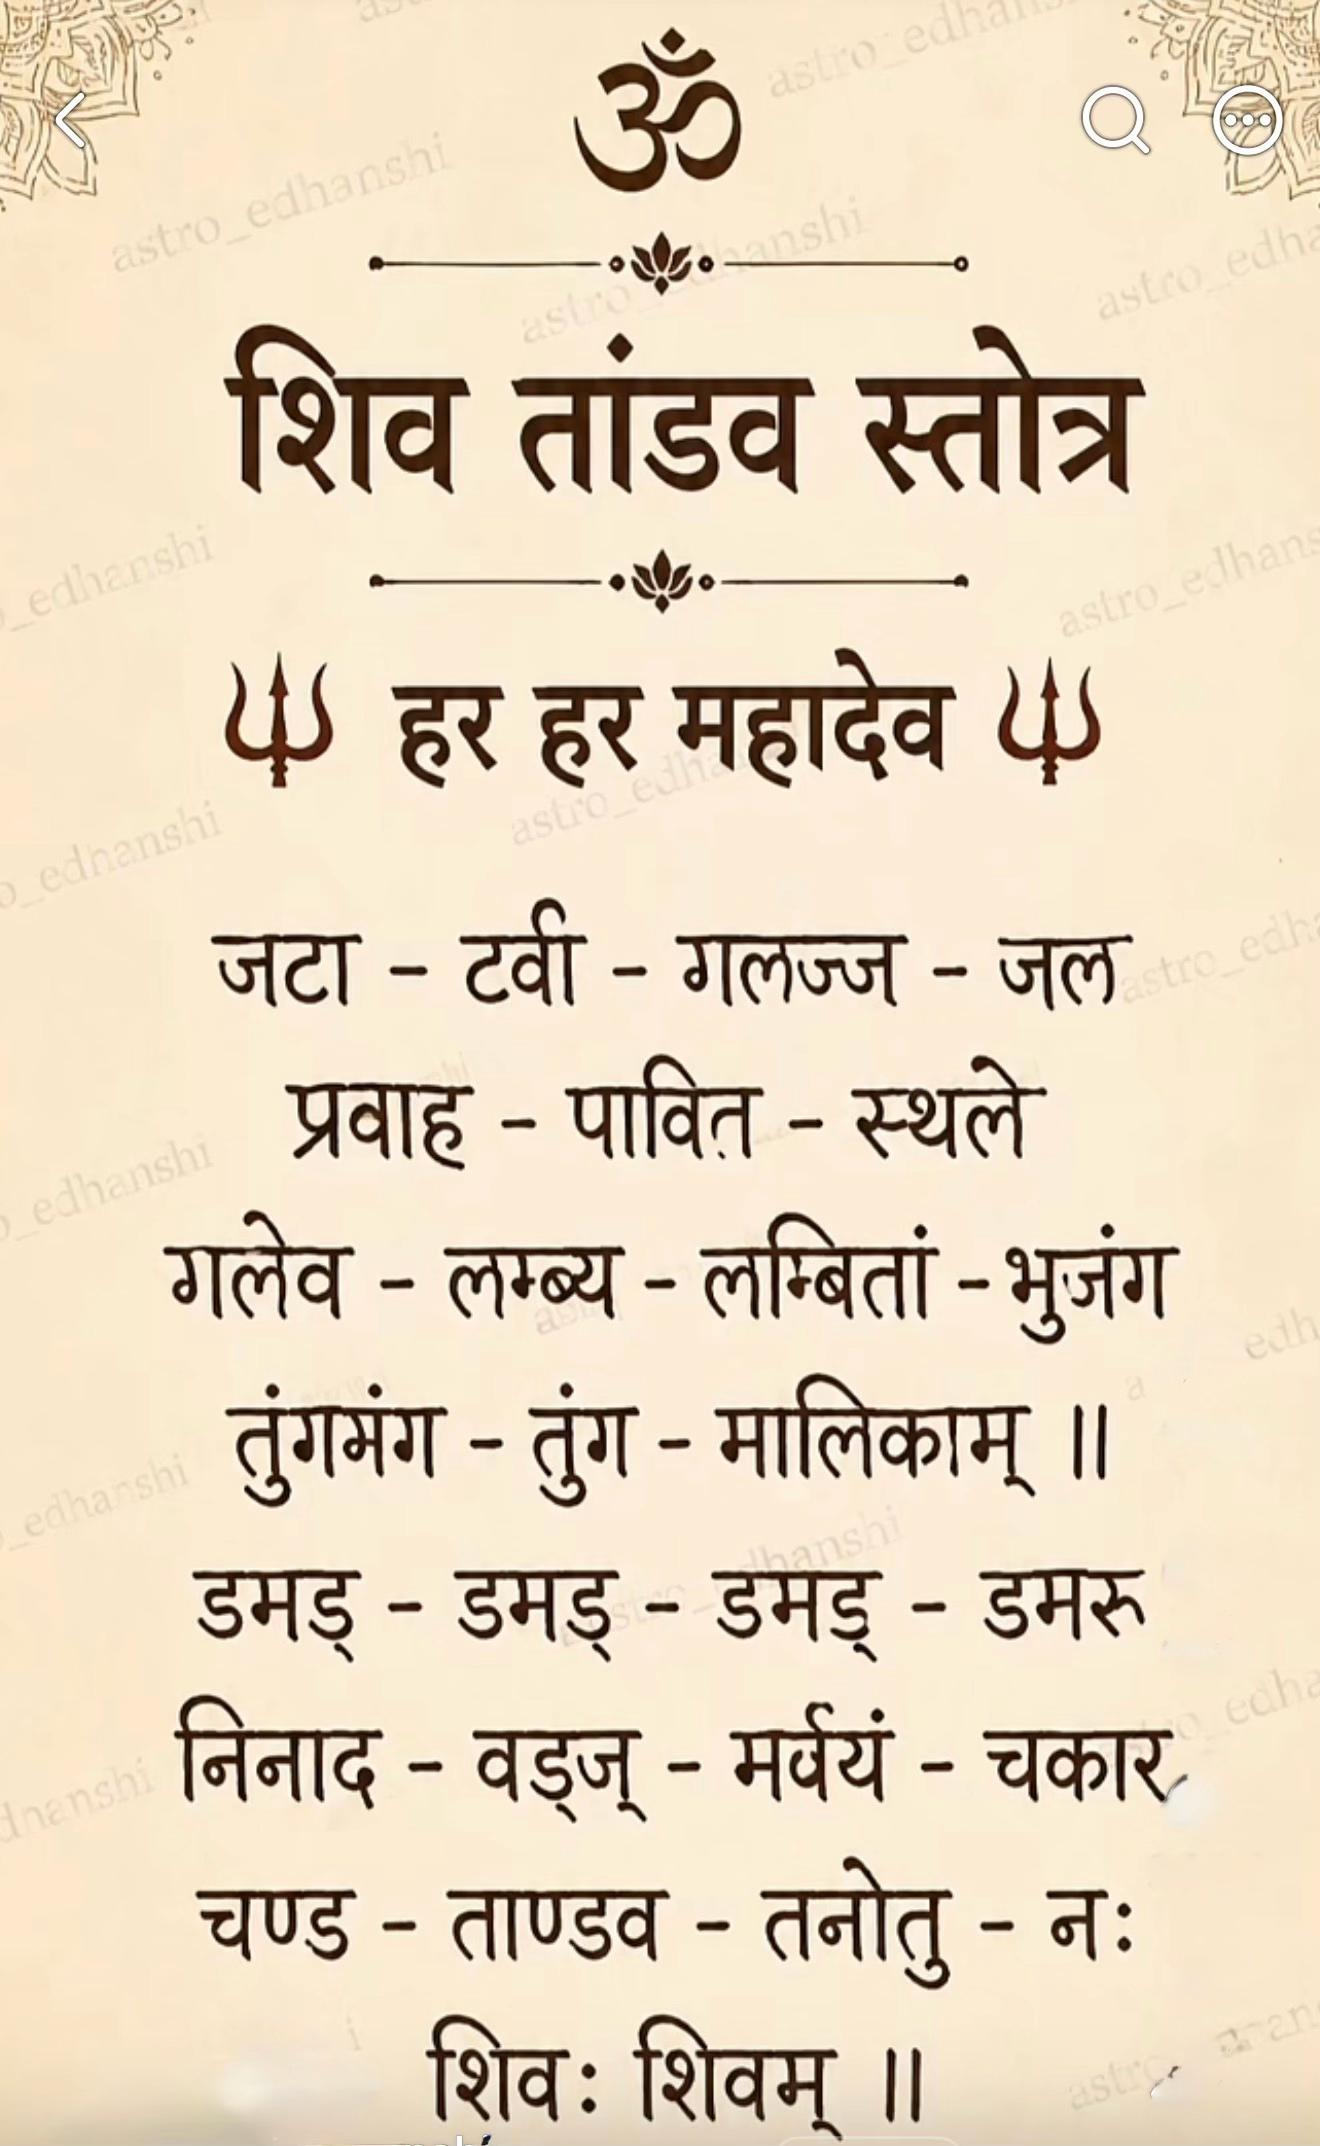 ॐ
शिव तांडव स्तोत्र
हर हर महादेव
जटा - टवी - गलज्ज - जल
प्रवाह - पावित़ - स्थले
गलेव - लम्ब्य - लम्बितां - भुजंग
तुंगमंग - तुंग - मालिकाम् ॥
डमड् - डमड् - डमड् - डमरू
निनाद - वड्ज् - मर्वयं - चकार
चण्ड - ताण्डव - तनोतु - नः
शिवः शिवम् ॥
astro_edhanshi